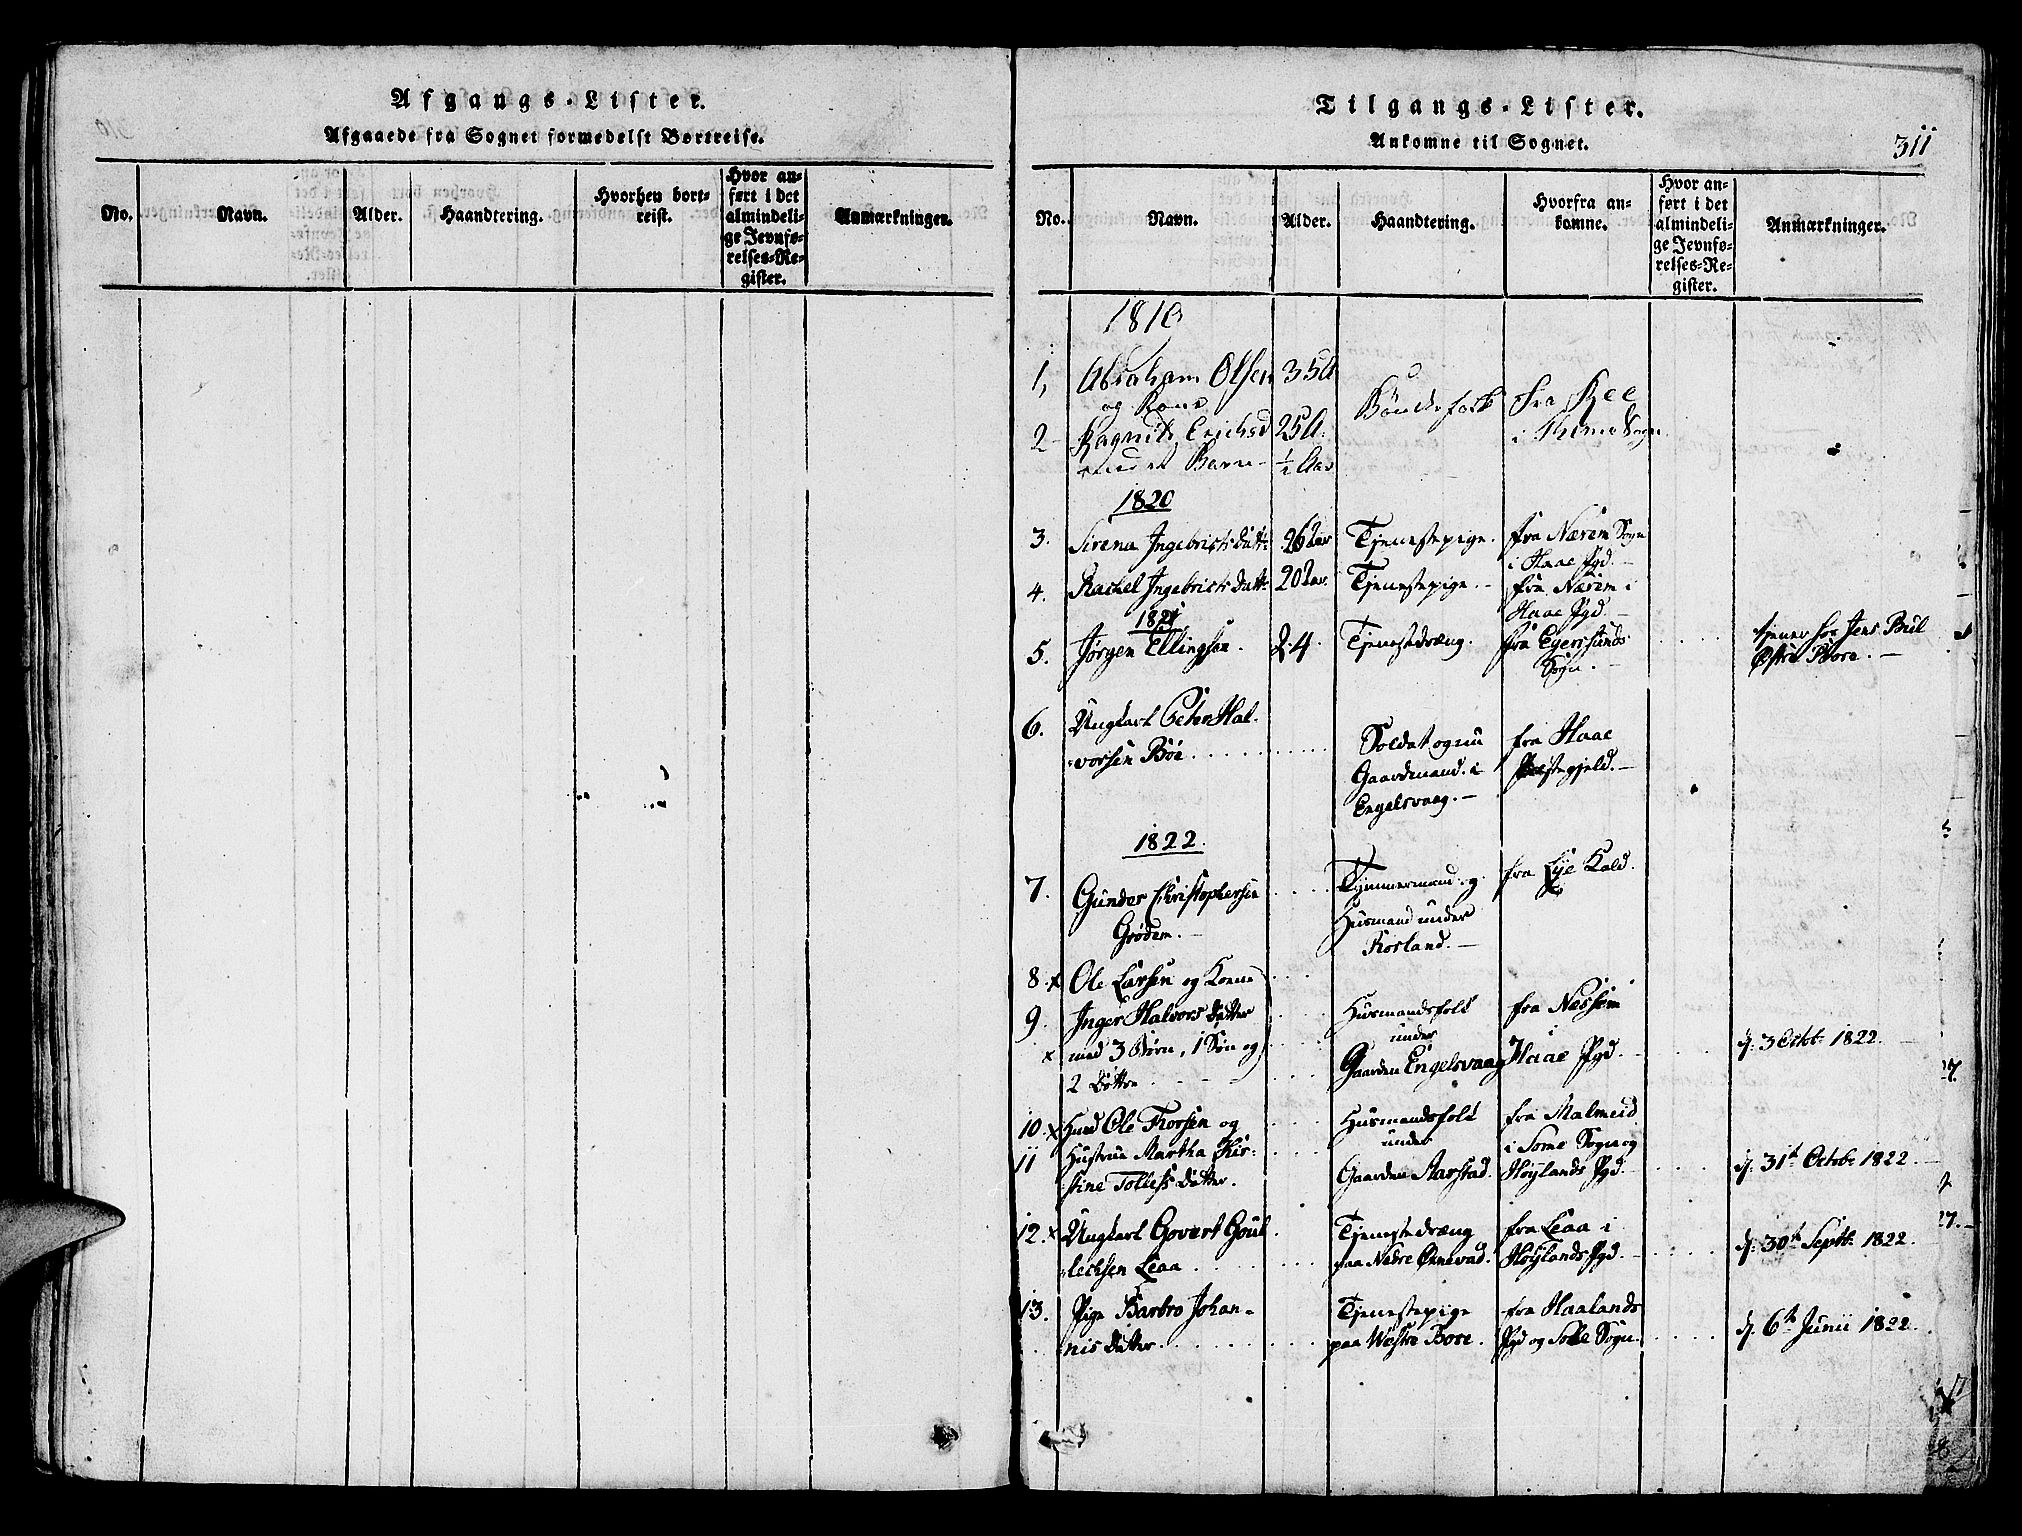 Afgangs-Lister.
Afgaaede fra Sognet formedelst Bortreise.
No.
Navn.
Alder.
Haandtering.
Hvorhen bort-
reist.
Hvor an-
ført i det
almindeli-
ge Jevnfø-
relses-Re-
gister.
Anmærkninger.
Tilgangs-Lister.
Ankomne til Sognet.
311
No.
Navn.
Alder.
Haandtering.
Hvorfra an-
komne.
Hvor an-
ført i det
almindeli-
ge Jevnfø-
relses-Re-
gister.
Anmærkninger.
1, Abraham Olsen 35 A
og Kone
Bøndefolk fra
2 Ragnild Erichsd 25 A.
med et Barn ½ Aar
i Sogn
1820
3. Sirena Ingebrictsdattr 26 Aar Tjenestepige. fra Nærem Sogn
i Haae Pgd.
4. Rachel Ingebrictsdattr 20 Aar. Tjenestepige. fra Nærem i
Haae Pgd.
1821
5. Jørgen Ellingsen. 24. Tjenestedræng. fra Egersunds
Sogn.
tjener hos Jens Bül
Østra Bore.
6. Ungkarl Peder Hal-
vorsen Böe
Soldat og nu
Gaardmand i
Engelsvaag.
fra Haae
Præstegjeld.
1822.
7. Gunder Christophersen
Grödem.
Tømmermand og
Husmand under
fra Lye Kald.
8. x Ole Larsen og Konne
9. Inger Halvors Datter
x med 3 Börn, 1 Sön og
2 Döttre
Husmandsfolk
under
Gaarden Engelsvaag
fra Næsheim
i Haae Pgd.
d. 3 Octbr 1822.
10 x Huusmd Ole Torsen og
11 Hustrue Martha Kir-
stine Tollefs Datter.
Husmandsfolk
under
Gaarden Aarstad.
fra Malmeid
i Some Sogn og
Höylands Pgd.
d. 31t Octobr 1822.
12. x Ungkarl Govert Goul
lichsen Leaa
Tjenestedræng
paa Nedre Ønnevad.
fra Leaa i
Höylands Pgd.
d. 30t Septbr 1822.
13. Pige Barbro Johan-
nis Datter.
Tjenestepige
paa Westre Bore.
fra Haalands
Pgd og Sole Sogn.
d. 6t Junii 1822.